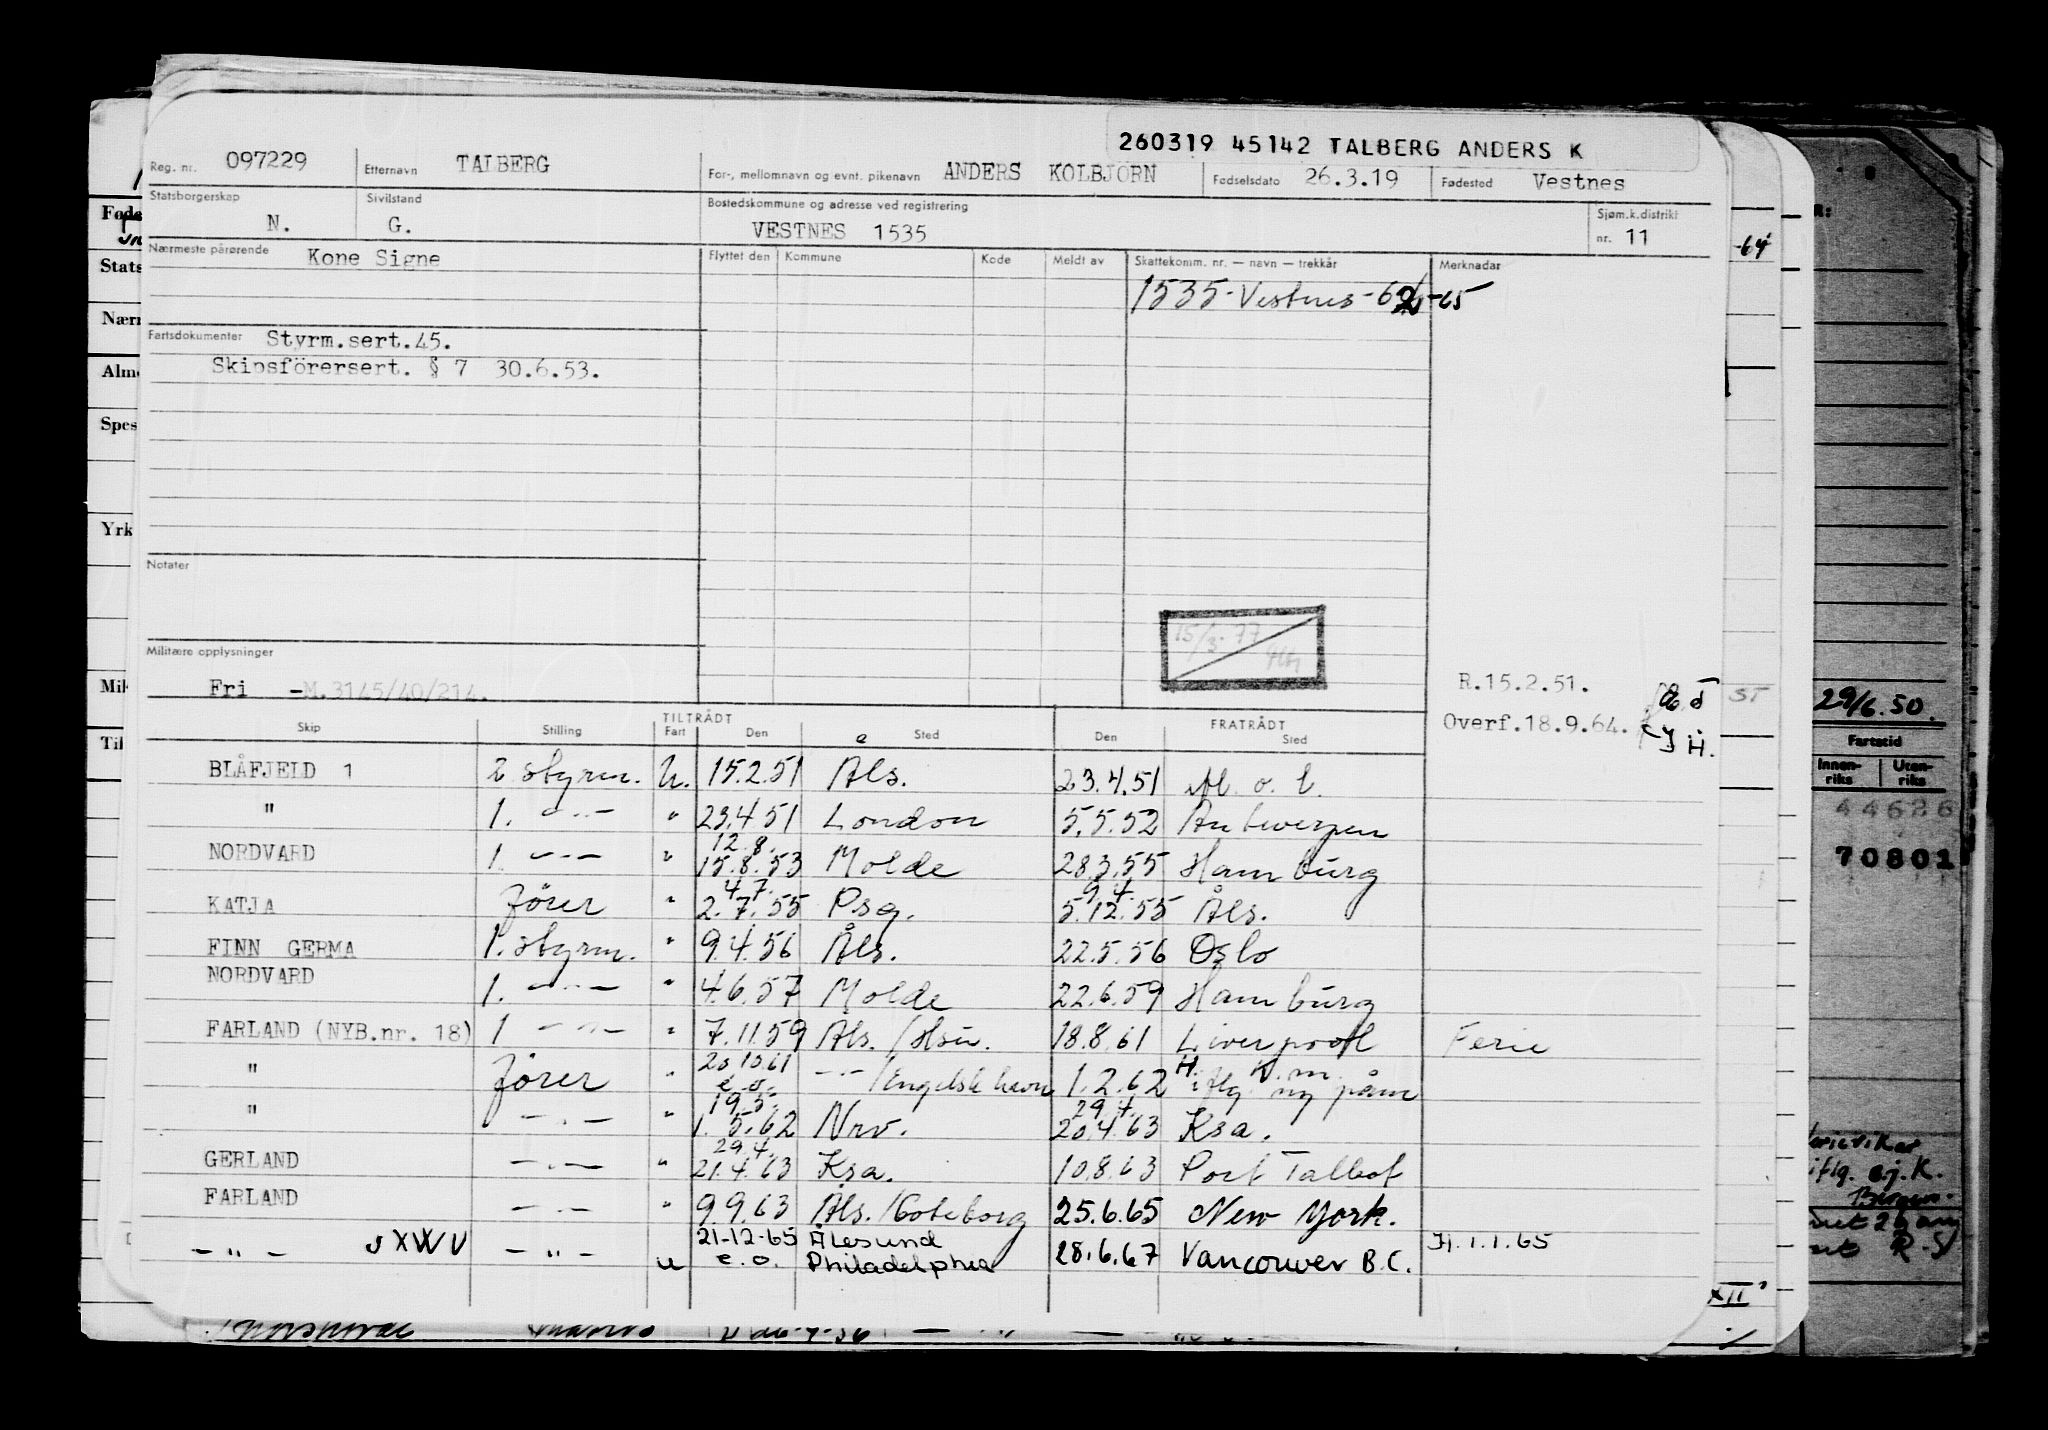 260319 45142 TALBERG ANDERS K
Reg. nr. 097229 Etternavn TALBERG For-, mellomnavn og evnt. pikenavn ANDERS KOLBJØRN Fødselsdato 26.3.19 Fødested Vestnes
Statsborgerskap N. Sivilstand G. Bostedskommune og adresse ved registrering VESTNES 1535 Sjøm.k.distrikt nr. 11
Nærmeste pårørende Kone Signe Flyttet den Kommune Kode Meldt av Skattekomm. nr. — navn — trekkår Merknadar
1535-Vestnes-65
Fartsdokumenter Styrm.sert.45.
Skipsförersert. § 7 30.6.53.
Notater
15/3-77
Militære opplysninger
Fri -M.3145/40/214.
R.15.2.51.
Overf.18.9.64.
Skip Stilling TILTRÅDT Fart Den Sted FRATRÅDT Den Sted
BLÅFJELD 1 2 styrm. U. 15.2.51 Åls. 23.4.51 M. o. b.
" 1. -"- " 23.4 51 London 5.5.52 Antwerpen
12.8.
NORDVARD 1. -"- " 15.8.53 Molde 28.3.55 Hamburg
4.7. 9.4.
KATJA förer " 2.7.55 Psg. 5.12.55 Åls.
FINN GERMA 1. styrm. " 9.4.56 Åls. 22.5.56 Oslo
NORDVARD 1. -"- " 4.6.57 Molde 22.6.59 Hamburg
FARLAND (NYB.nr. 18) 1 -"- " 7.11.59 Åls./Hsu. 18.8.61 Liverpool Ferie
20 10 61
" förer " e.o. -"-/Engelsk havn 1.2.62 iflg. ny påm
19.5. 29.4.
" -"- " 1.5.62 Nrv. 20.4.63 Ksa.
29.4.
GERLAND -"- " 21.4.63 Ksa. 10.8.63 Port Talbot
FARLAND -"- " 9.9.63 Åls./Göteborg 25.6.65 New York.
-"- JXWV -"- u 21-12-65 e.o. Ålesund Philadelphia 28.6.67 Vancouver B.C. H.1.1.65
Føde
Stats
Nærr
Alm
Spes
Yrk
Mil
Til
-64
ST
29/6.50.
Fartstid
Innen-riks Uten-riks
44626
70801
iflg. e.j.K.
XII